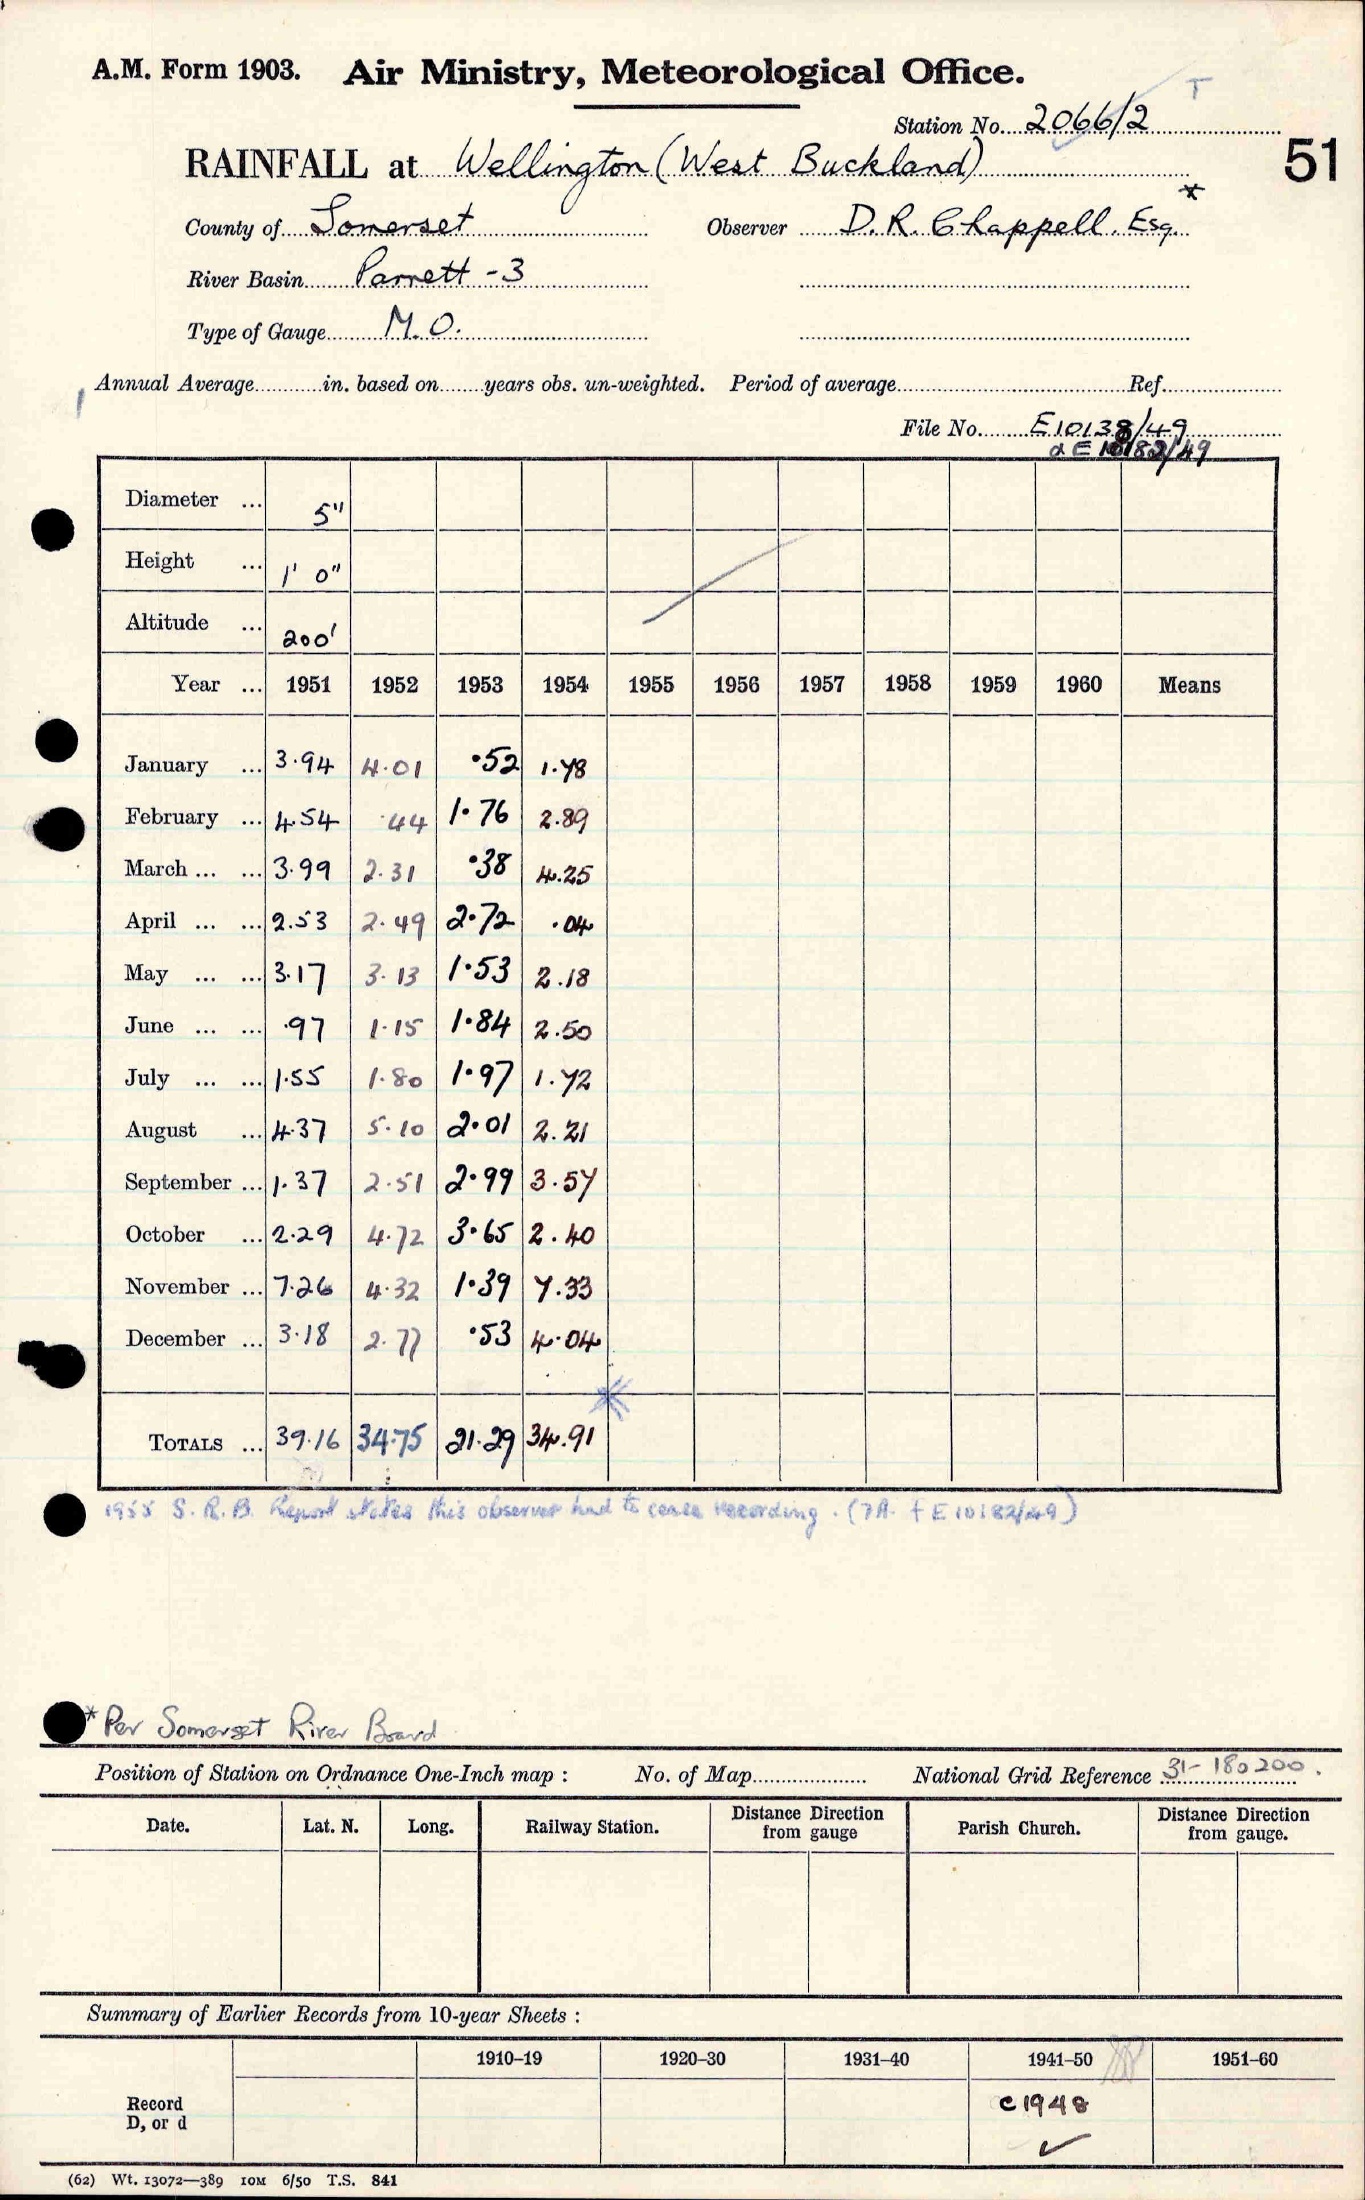 A.M. Form 1903. Air Ministry, Meteorological Office.
T
Station No. 2066/2
51
RAINFALL at Wellington (West Buckland)
County of Somerset Observer D. R. Chappell. Esq. *
River Basin Parrett - 3
Type of Gauge M.O.
Annual Average in. based on years obs. un-weighted. Period of average Ref.
File No. E10138/49
& E 10182/49
Diameter ... 5"
Height ... 1' 0"
Altitude ... 200'
Year ... 1951 1952 1953 1954 1955 1956 1957 1958 1959 1960 Means
January ... 3.94 4.01 .52 1.78
February ... 4.54 .44 1.76 2.89
March ... ... 3.99 2.31 .38 4.25
April ... ... 2.53 2.49 2.72 .04
May ... ... 3.17 3.13 1.53 2.18
June ... ... .97 1.15 1.84 2.50
July ... ... 1.55 1.80 1.97 1.72
August ... 4.37 5.10 2.01 2.21
September ... 1.37 2.51 2.99 3.57
October ... 2.29 4.72 3.65 2.40
November ... 7.26 4.32 1.39 7.33
December ... 3.18 2.77 .53 4.04
TOTALS ... 39.16 34.75 21.29 34.91
*
1955 S.R.B. Report states this observer had to cease recording. (7A. f E 10182/49)
* Per Somerset River Board
Position of Station on Ordnance One-Inch map : No. of Map National Grid Reference 31-180200.
Date. Lat. N. Long. Railway Station. Distance Direction from gauge Parish Church. Distance Direction from gauge.
Summary of Earlier Records from 10-year Sheets :
1910–19 1920–30 1931–40 1941–50 1951–60
Record
D, or d
c 1948
✓
(62) Wt. 13072—389 10M 6/50 T.S. 841